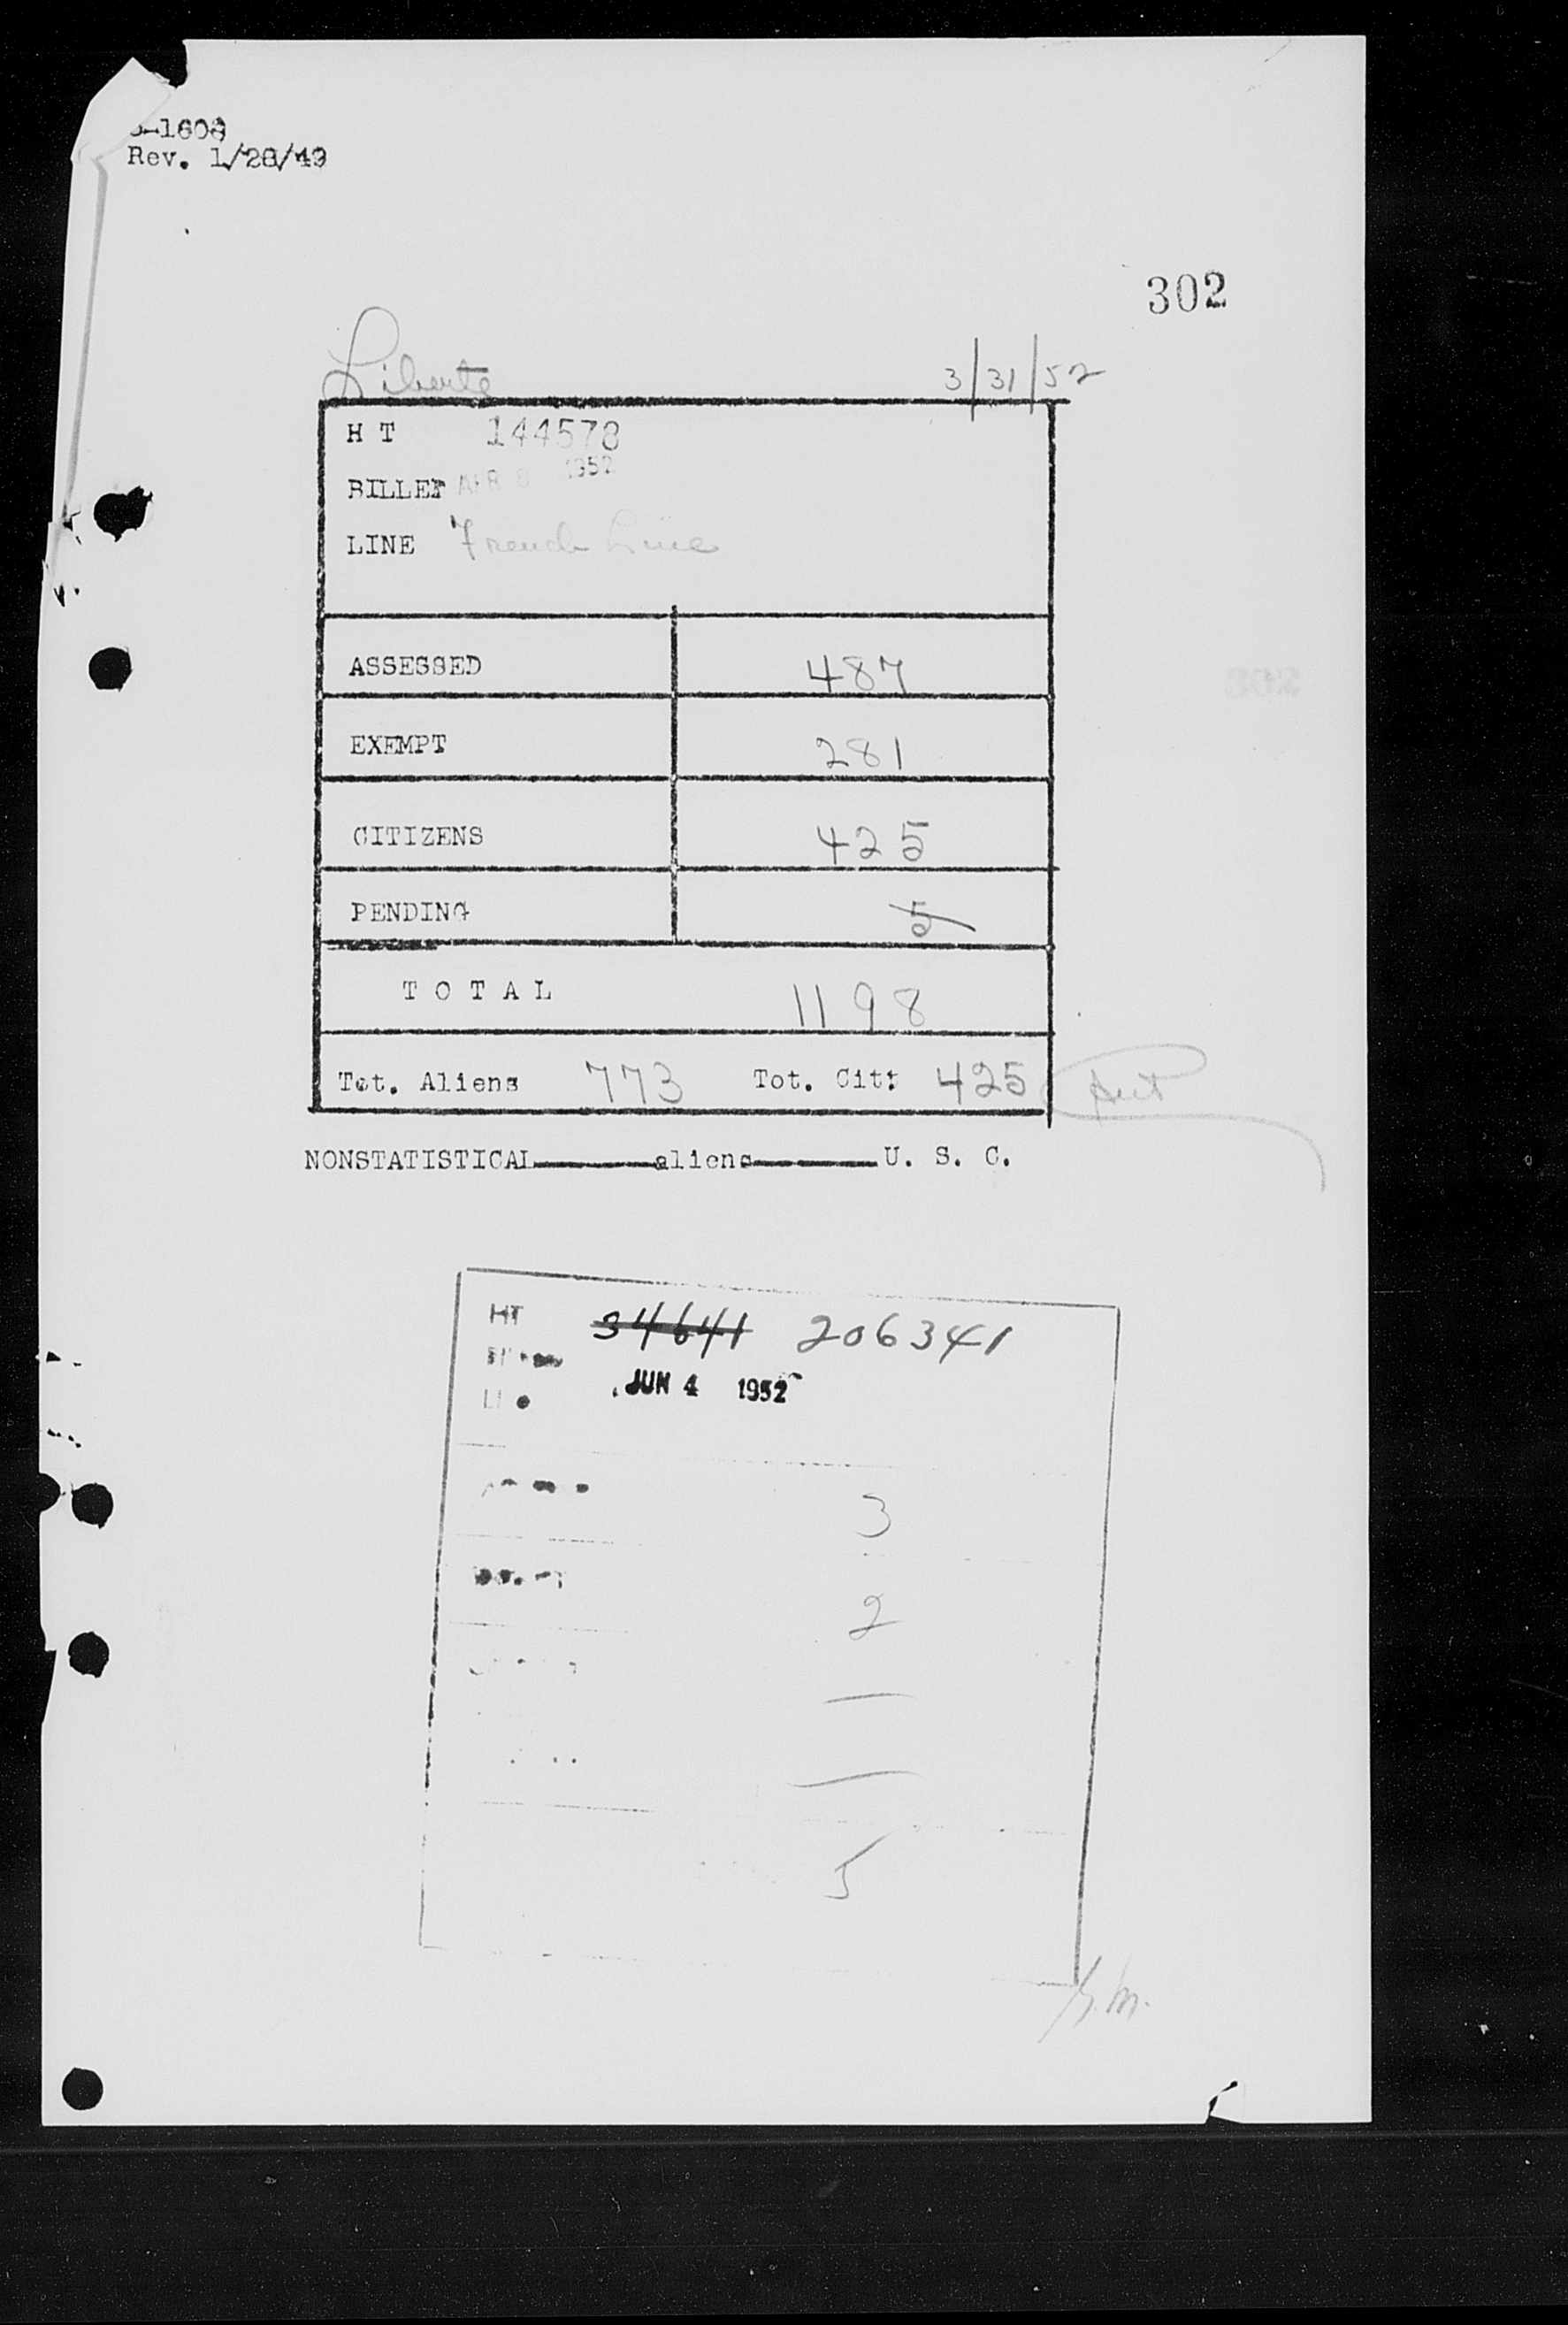 -1608
Rev. 1/28/49
302
Liberte 3/31/52
H T 144578
BILLED APR 8 1952
LINE French Line
ASSESSED 487
EXEMPT 281
CITIZENS 425
PENDING 5
T O T A L 1198
Tot. Aliens 773 Tot. Cit: 425
NONSTATISTICAL aliens U. S. C.
HT 34641 206341
JUN 4 1952
3
2
—
—
5